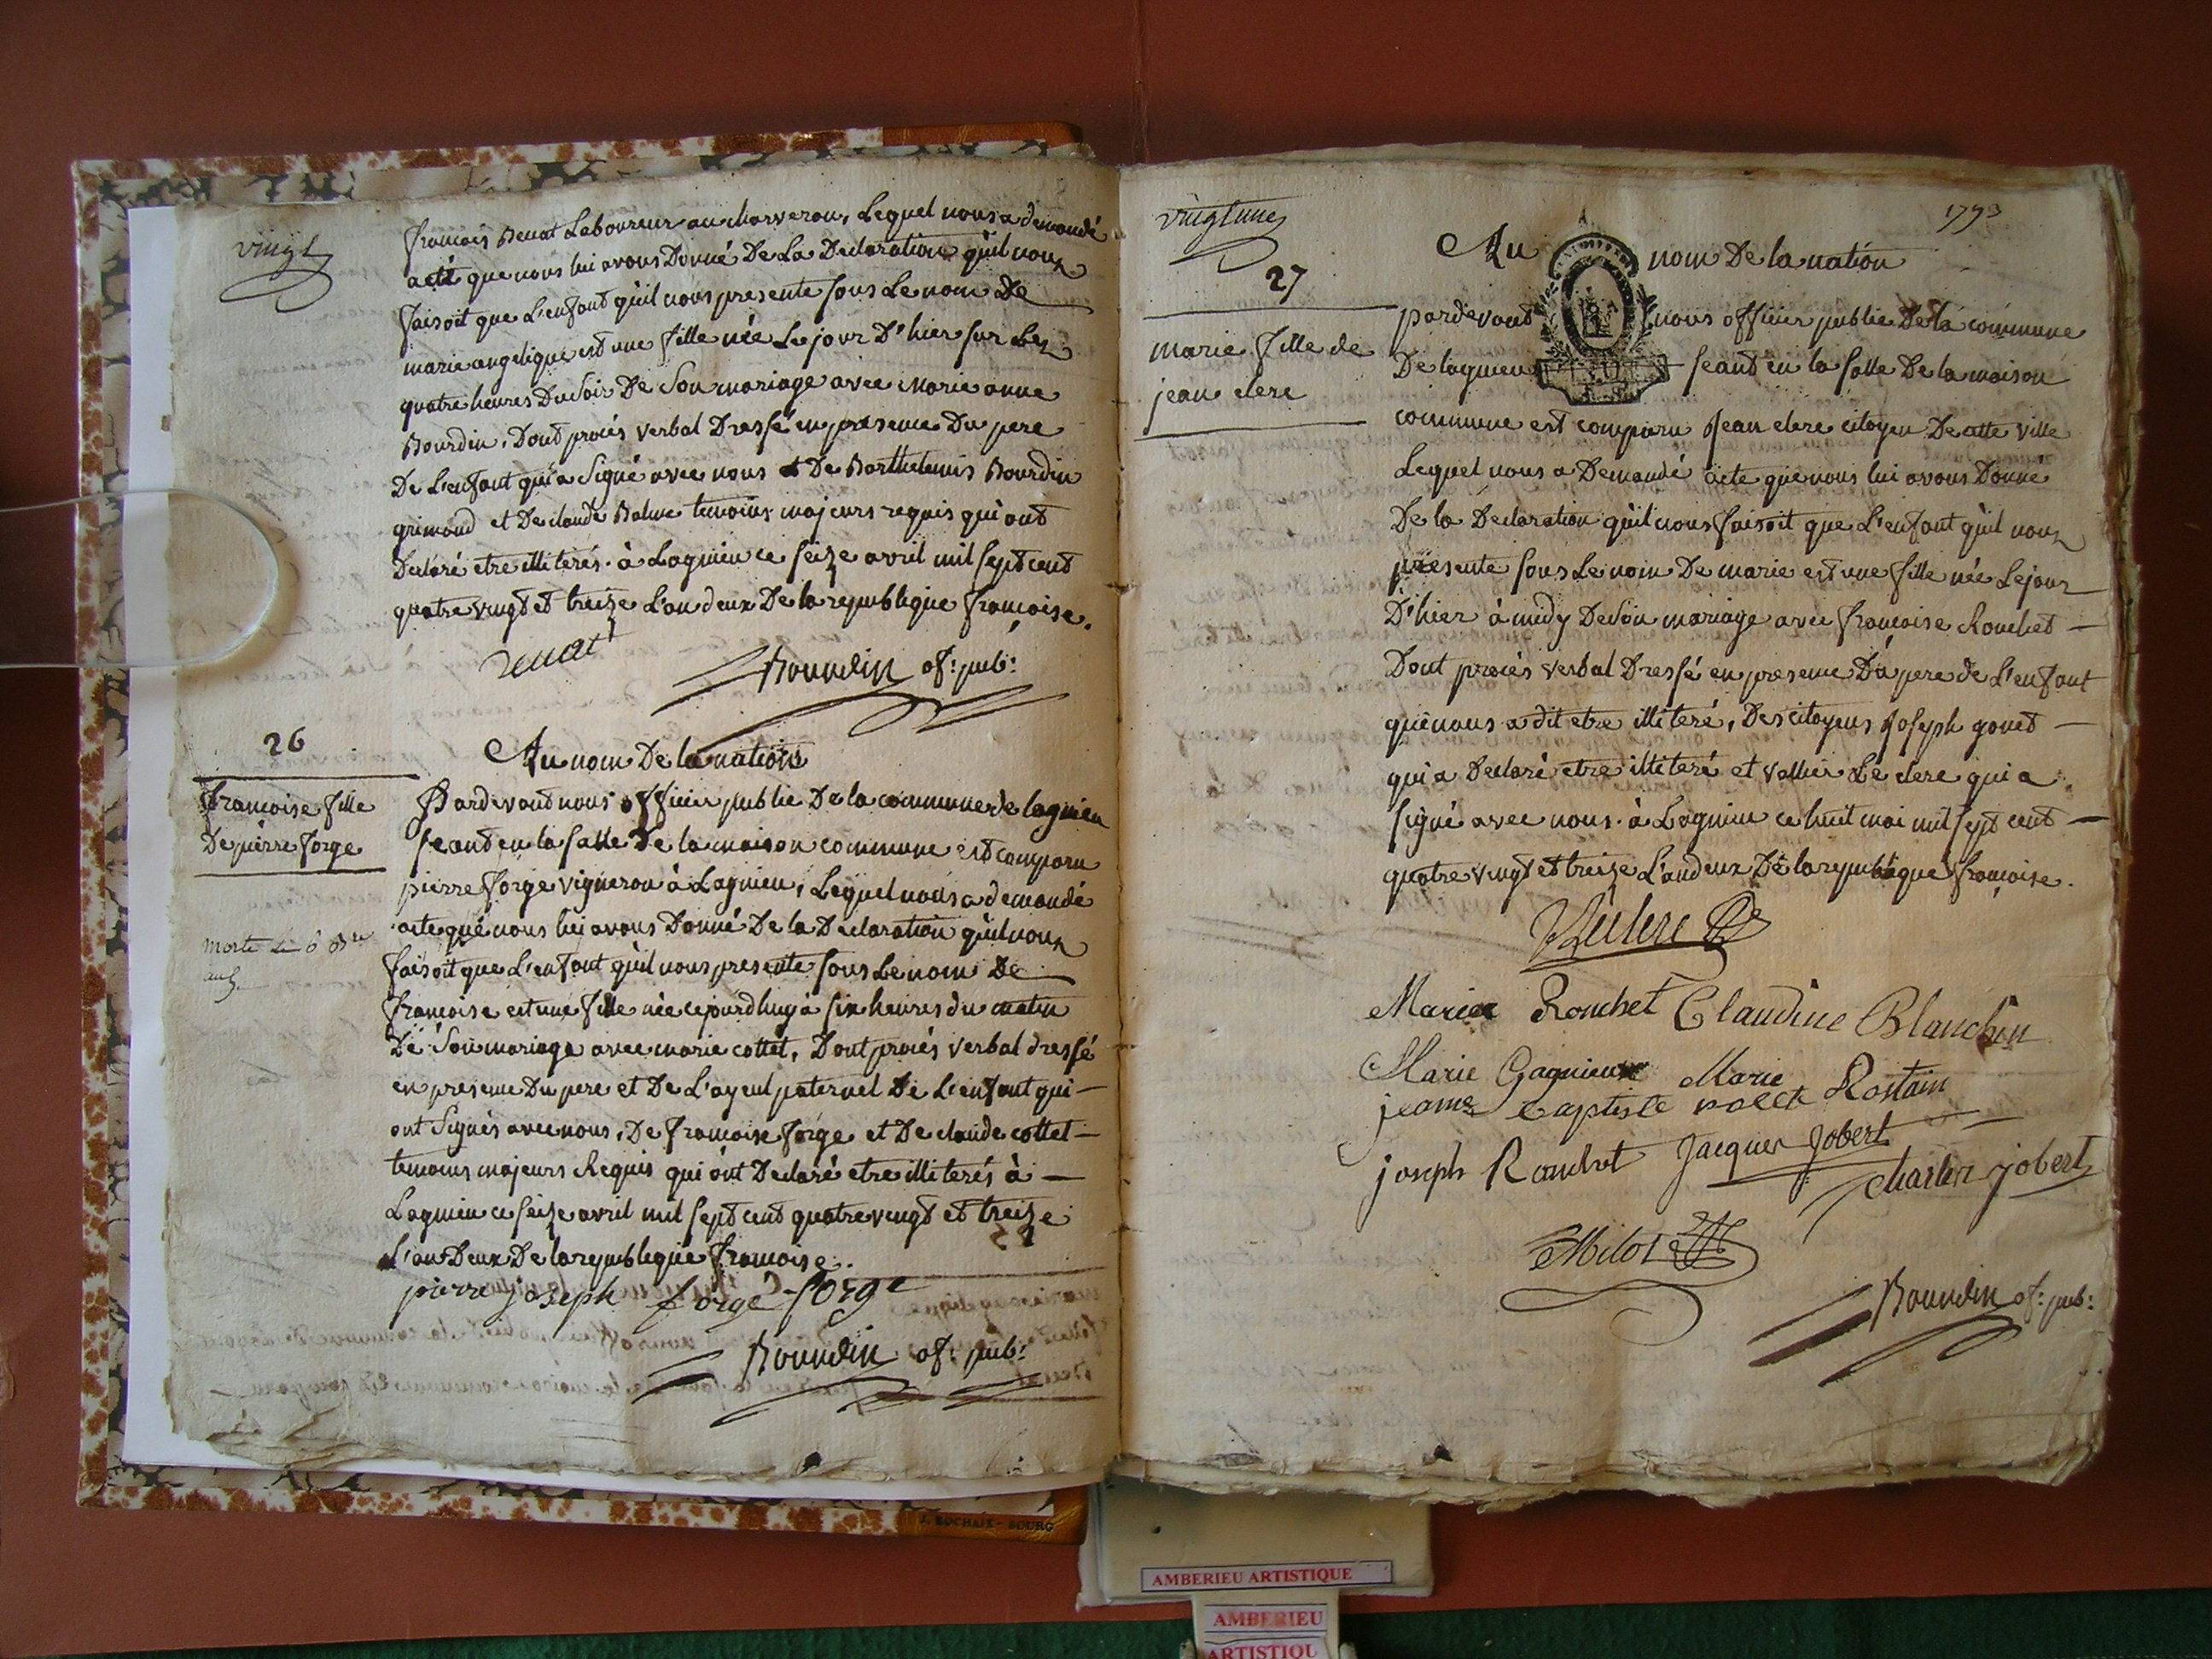 vingt
francois Benat Laboureur au charveron, Lequel nous a demandé
acte que nous lui avons Donné De La Declaration qu'il nous
faisoit que L'enfant qu'il nous presente sous Le nom De
marie angelique est une fille née Le jour D'hier sur Les
quatre heures Du soir De Son mariage avec marie anne
Bourdin, Dont procés verbal Dressé en presence Du pere
De L'enfant qui a signé avec nous et De Barthelemis Bourdin
grimand et De claude Balme temoins majeurs requis qui ont
Declaré etre illiterés. à Lagnieu ce seize avril mil sept cent
quatre vingt et treize L'an deux De la republique francoise.
Benat
Bourdin of: pub:
26
francoise fille
De pierre forge
morte le 6
Au nom De la nation
Pardevant nous officier public De la commune de lagnieu
seant en la salle De la maison commune est comparu
pierre forge vigneron à Lagnieu, Lequel nous a demandé
acte que nous lui avons Donné De la Declaration qu'il nous
faisoit que L'enfant qu'il nous presente sous Le nom De
francoise est une fille née cejourdhuy à six heures du matin
De Son mariage avec marie cottet, Dont procés verbal dressé
en presence Du pere et De L'ayeul paternel De L'enfant qui
ont Signés avec nous, De francoise forge et De claude cottet
temoins majeurs Requis qui ont Declaré etre illiterés à
Lagnieu ce seize avril mil sept cent quatre vingt et treize
L'an Deux De la republique francoise.
pierre joseph forge forge
Bourdin of: pub:
vingt une
1793
27
marie fille de
jean clere
Au nom De la nation
pardevant nous officier public De la commune
De lagnieu seant en la salle De la maison
commune est comparu Jean clere citoyen De cette ville
Lequel nous a Demandé acte que nous lui avons Donné
De la Declaration qu'il nous faisoit que L'enfant qu'il nous
presente sous Le nom De marie est une fille née Le jour
D'hier à midy De son mariage avec francoise Rouchet
Dont procés verbal Dressé en presence Du pere de L'enfant
qui nous a dit etre illiteré, Des citoyens Joseph gouet
qui a Declaré etre illiteré et vallier Le clere qui a
signé avec nous. à Lagnieu ce huit mai mil sept cent
quatre vingt et treize L'an deux De la republique françoise.
Leclere
Marie Ronchet Claudine Blanchin
Marie Gagnieux Marie
jeanne Baptiste Rostain
joseph Ronchet Jacques Jobert
charles jobert
Milot
Bourdin of: pub:
J. ROCHAIX - BOURG
AMBERIEU ARTISTIQUE
AMBERIEU
ARTISTIQU